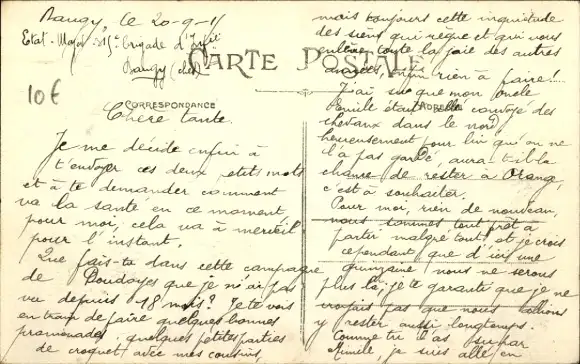 Baugy, le 20-9-15
Etat-Major 315e Brigade d'Inf
Baugy (cher)
CARTE POSTALE
10€
CORRESPONDANCE
ADRESSE
Chère tante.
Je me décide enfin à
t'envoyer ces deux petits mots
et à te demander comment
va la santé en ce moment
pour moi, cela va à merveil
pour l'instant.
Que fais-tu dans cette campagne
de que je n'ai pas
vu depuis 18 mois? Je te vois
en train de faire quelques bonnes
promenades, quelques petites parties
de croquet avec mes cousins,
mais toujours cette inquiétude
des siens qui règne et qui vous
enlève toute la joie des autres
années, mais rien à faire!..
J'ai su que mon oncle
Emile était allé convoyé des
chevaux dans le nord
heureusement pour lui qu'on ne
l'a pas gardé, aura-t-il la
chance de rester à Orange,
c'est à souhaiter.
Pour moi, rien de nouveau,
nous sommes tout prêt à
partir malgré tout et je crois
cependant que d'ici une
quinzaine nous ne serons
plus là, je te garantie que je ne
croyais pas que nous allions
y rester aussi longtemps.
Comme tu as su par
je suis allé en